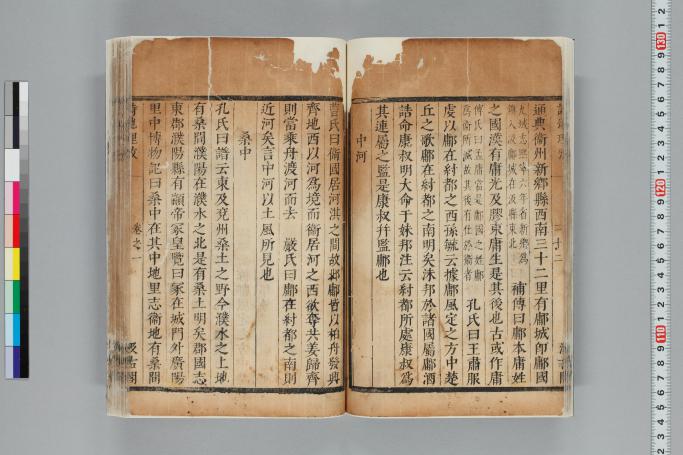 通典衞州新鄉縣西南三十二里有鄘城卽鄘國
補傳曰鄘本庸姓
之國漢有庸光及膠東庸生是其後也古或作庸
孔氏曰王肅服
虔以鄘在紂都之西孫毓云據鄘風定之方中楚
丘之歌鄘在紂都之南明矣沬邦於諸國屬鄘酒
誥命康叔明大命于妹邦注云紂都所處康叔爲
其連屬之監是康叔幷監鄘也
中河
曹氏曰衞國居河淇之間故邶鄘皆以柏舟發興
齊地西以河爲境而衞居河之西欲奪共姜歸齊
則當乘舟渡河而去 嚴氏曰鄘在紂都之南則
近河矣言中河以土風所見也
桑中
孔氏曰譜云東及兗州桑土之野今濮水之上地
有桑閒濮陽在濮水之北是有桑土明矣郡國志
東郡濮陽縣有顓帝冢皇覽曰冢在城門外廣陽
里中博物記曰桑中在其中地里志衞地有桑間
卷之一
汲古閣